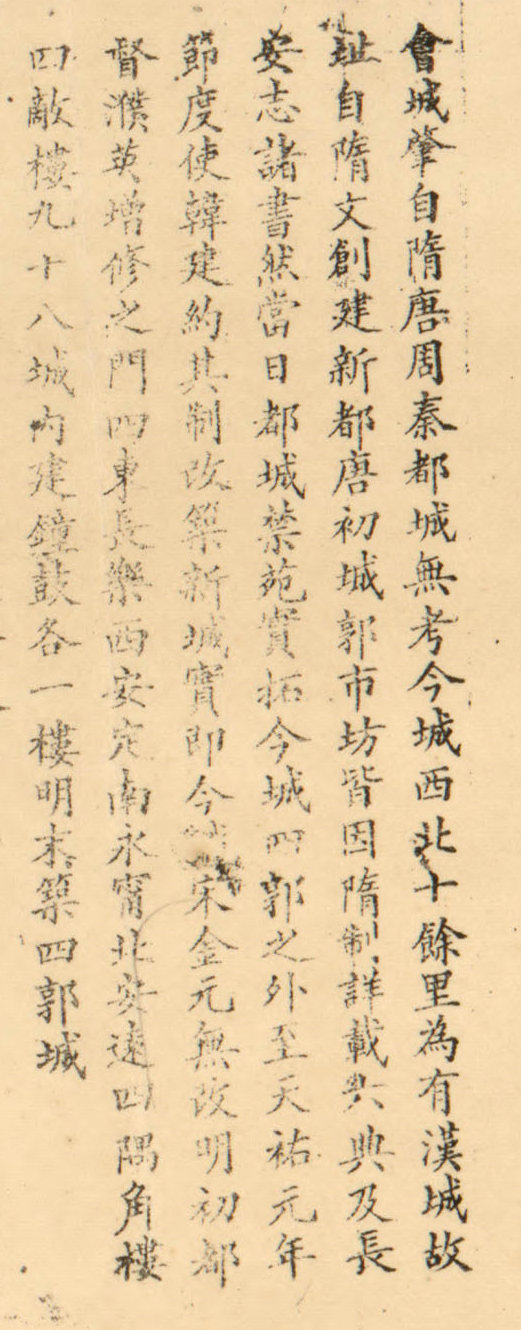 會城肇自隋唐周秦都城無考今城西北十餘里為有漢城故
趾自隋文創建新都唐初城郭市坊皆因隋制詳載六典及長
安志諸書然當日都城禁苑實拓今城四郭之外至天祐元年
節度使韓建約其制改築新城實即今城宋金元無改明初都
督濮英增修之門四東長樂西安定南永甯北安遠四隅角樓
四敵樓九十八城內建鐘鼓各一樓明末築四郭城